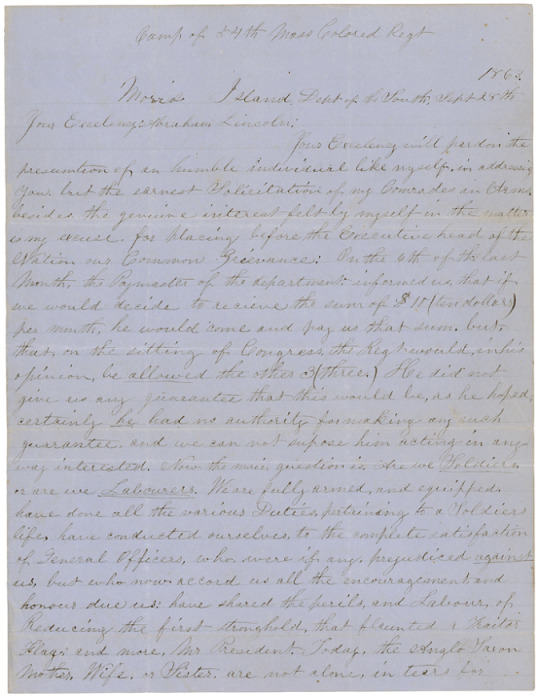 Camp of 54th Mass Colored Regt
1863.
Morris Island, Dept of the South, Sept 28th
Your Excelency: Abraham Lincoln:
Your Excelency will pardon the
presumtion of an humble individual like myself, in addressing
you. but the earnest Solicitation of my Comrades in Arms,
besides the genuine interest felt by myself in the matter
is my excuse, for placing before the Executive head of the
Nation our Common Grievance: On the 6th of the last
Month, the Paymaster of the department, informed us, that if
we would decide to recieve the sum of $10 (ten dollars)
per month, he would come and pay us that sum, but,
that, on the sitting of Congress, the Regt would, in his
opinion, be allowed the other 3 (three.) He did not
give us any guarantee that this would be, as he hoped,
certainly he had no authority for making any such
guarantee, and we can not supose him acting in any
way interested. Now the main question is, Are we Soldiers,
or are we Labourers. We are fully armed, and equipped,
have done all the various Duties, pertaining to a Soldiers
life, have conducted ourselves, to the complete satisfaction
of General Officers, who, were if any, prejudiced against
us, but who now accord us all the encouragement, and
honour due us: have shared the perils, and Labour, of
Reducing the first stronghold, that flaunted a Traitor
Flag: and more, Mr President. Today, the Anglo Saxon
Mother, Wife, or Sister, are not alone, in tears for